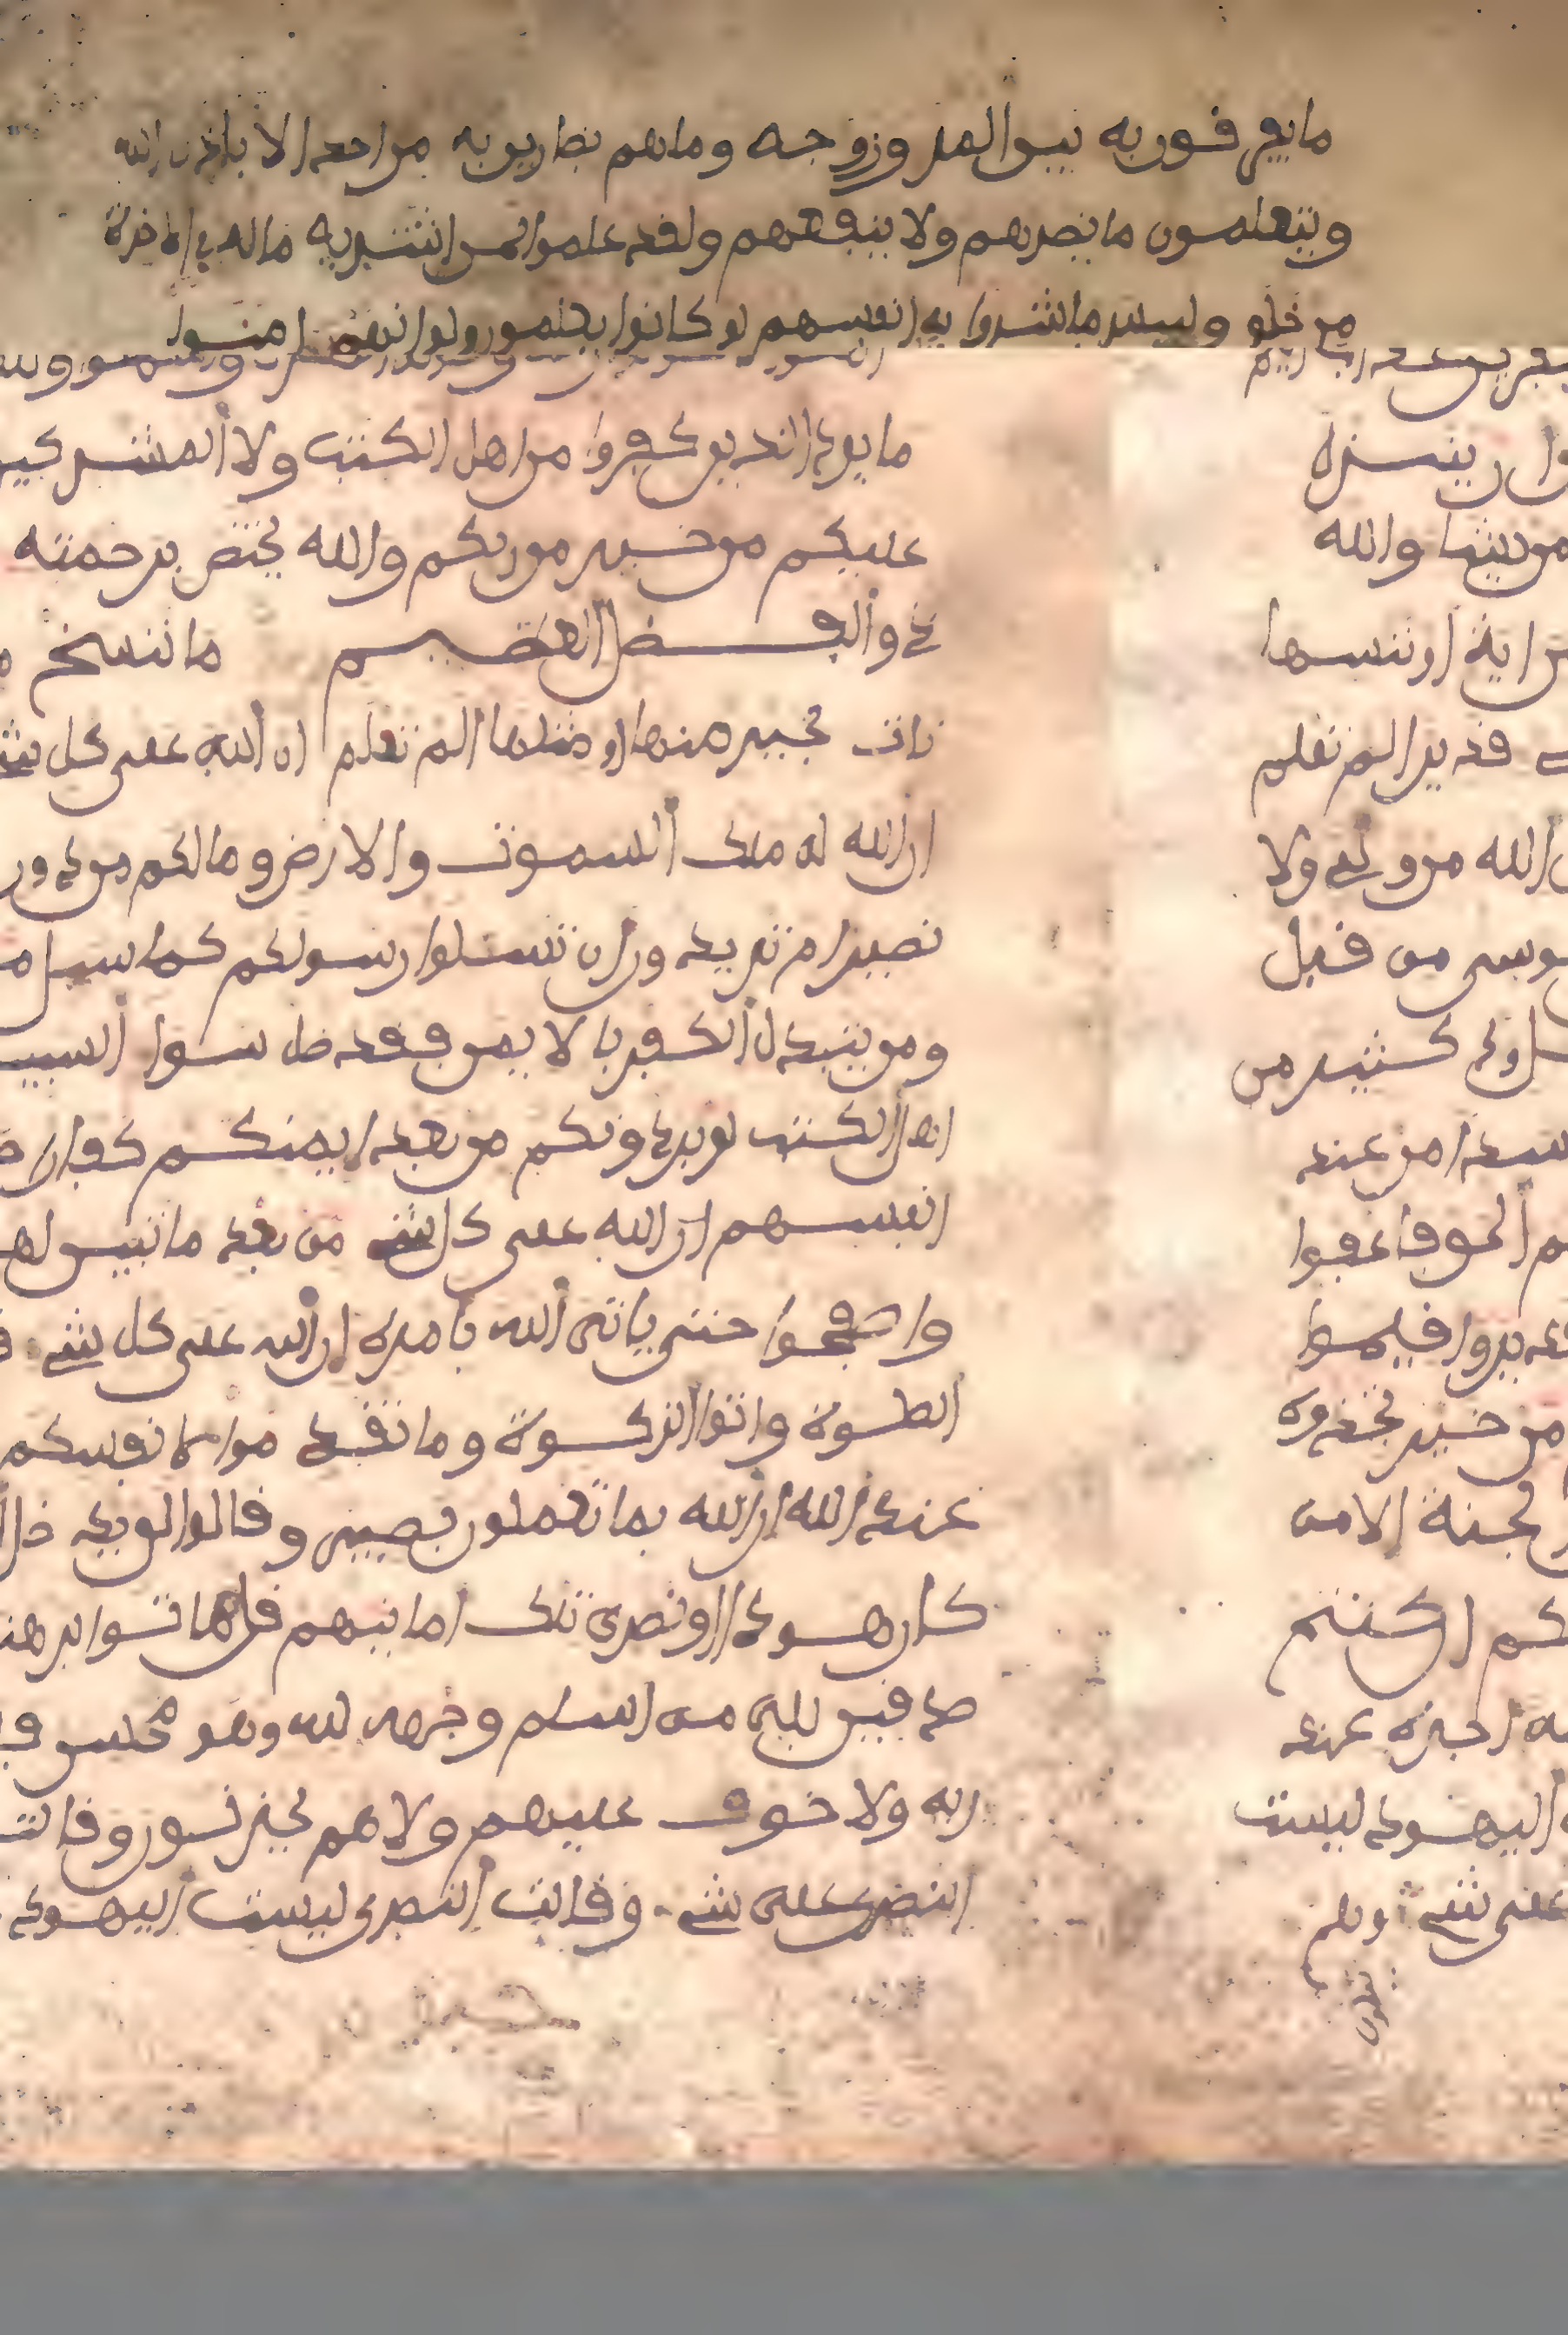 ما يفرقون به بين المر وزوجه وما هم بضارين به من احد الا باذن الله
ويتعلمون ما يضرهم ولا ينفعهم ولقد علموا لمن اشتريه ما له في الاخرة
من خلق ولبيس ما شروا به انفسهم لو كانوا يعلمون ولو انهم امنوا
ما يود الذين كفروا من اهل الكتب ولا المشركين
عليكم من خير من ربكم والله يختص برحمته
ذو الفضل العظيم ما ننسخ
نات بخير منها او مثلها الم تعلم ان الله على كل شي
ان الله له ملك السموت والارض وما لكم من دون
نصير ام تريدون ان تسلوا رسولكم كما سيل
ومن يتبدل الكفر بالايمن فقد ضل سوا السبيل
اهل الكتب لو يردونكم من بعد ايمنكم كفارا
انفسهم ان الله على كل شي من بعد ما تبين لهم
واصفحوا حتى ياتي الله بامره ان الله على كل شي
الصلوة واتوا الزكوة وما تقدموا لانفسكم
عند الله ان الله بما تعملون بصير وقالوا لن يدخل
كان هودا او نصرى تلك امانيهم قل هاتوا برهنكم
صدقين بلى من اسلم وجهه لله وهو محسن
ربه ولا خوف عليهم ولا هم يحزنون وقالت
النصرى على شي وقالت النصرى ليست اليهود
ان ينزل
من يشا والله
من اية او ننسها
قدير الم تعلم
الله من ولي ولا
موسى من قبل
ود كثير من
حسدا من عند
الحق فاعفوا
قدير واقيموا
من خير تجدوه
الجنة الا من
ان كنتم
اجره عند
اليهود ليست
على شي وهم
يتلون